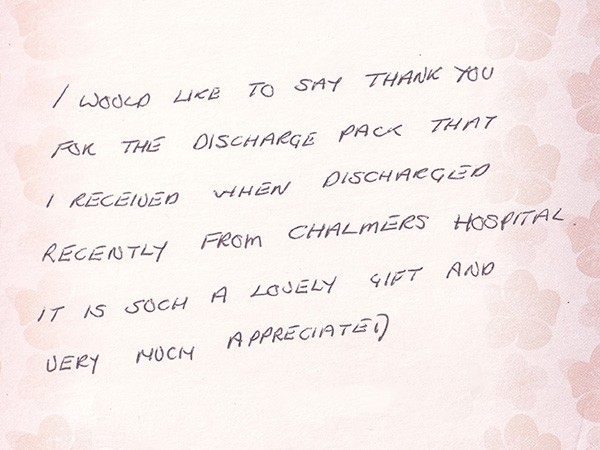 I WOULD LIKE TO SAY THANK YOU
FOR THE DISCHARGE PACK THAT
I RECEIVED WHEN DISCHARGED
RECENTLY FROM CHALMERS HOSPITAL.
IT IS SUCH A LOVELY GIFT AND
VERY MUCH APPRECIATED